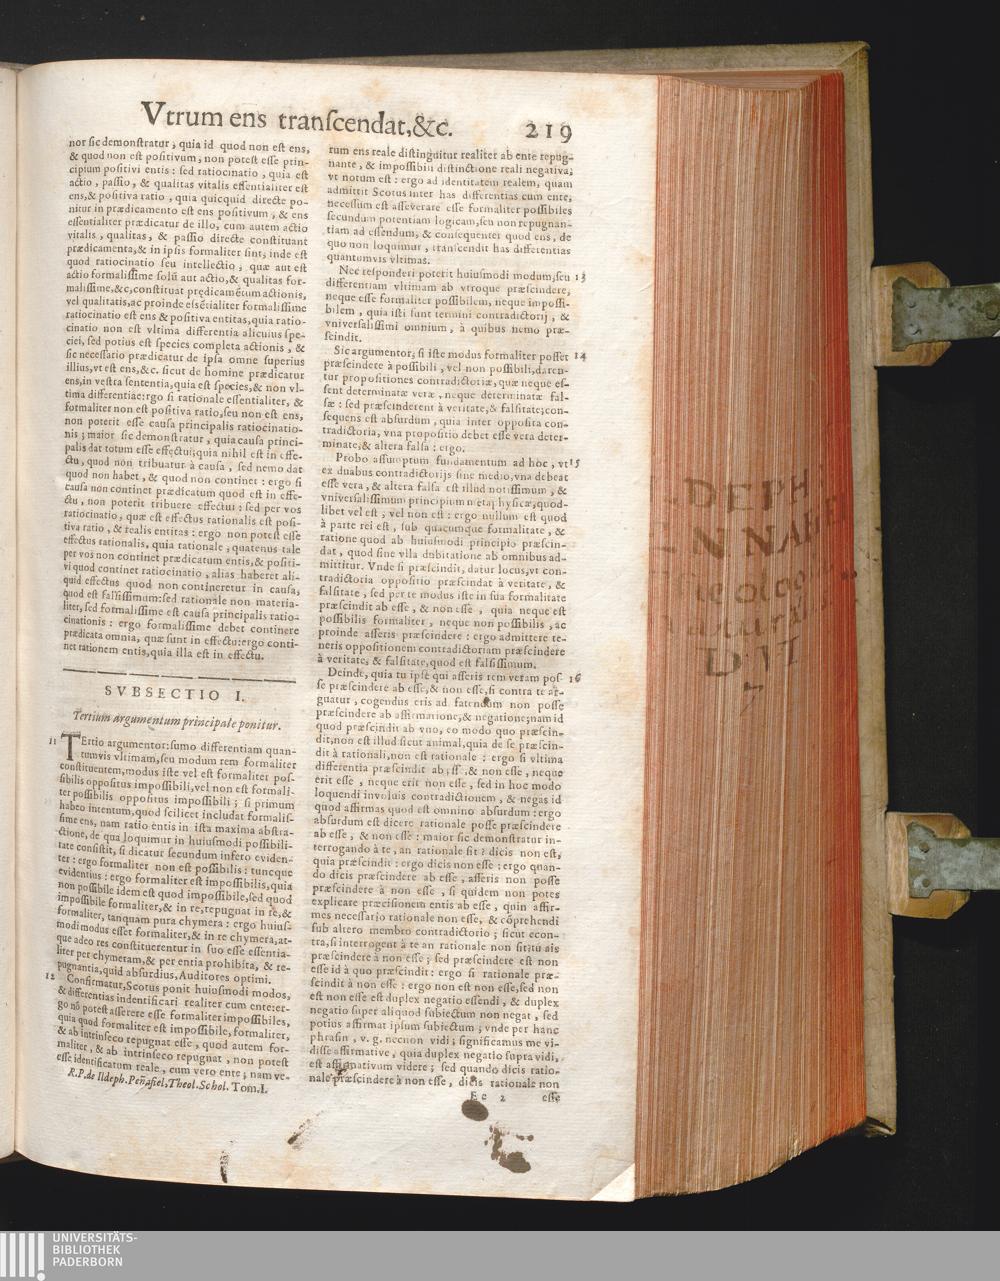 Vtrum ens transcendat,&c. 219
nor sic demonstratur, quia id quod non est ens,
& quod non est positivum, non potest esse prin-
cipium positivi entis: sed ratiocinatio, quia est
actio, passio, & qualitas vitalis essentialiter est
ens,& positiva ratio, quia quicquid directe po-
nitur in prædicamento est ens positivum, & ens
essentialiter prædicatur de illo, cum autem actio
vitalis, qualitas, & passio directe constituant
prædicamenta,& in ipsis formaliter sint, inde est
quod ratiocinatio seu intellectio, quæ aut est
actio formalissime solū aut actio,& qualitas for-
malissime,&c,constituat prędicamētum actionis,
vel qualitatis,ac proinde essētialiter formalissime
ratiocinatio est ens & positiva entitas,quia ratio-
cinatio non est vltima differentia alicuius spe-
ciei, sed potius est species completa actionis, &
sic necessatio prædicatur de ipsa omne superius
illius,vt est ens,&c. sicut de homine prædicatur
ens,in vestra sententia,quia est species,& non vl-
tima differentia:ergo si rationale essentialiter, &
formaliter non est positiva ratio,seu non est ens,
non poterit esse causa principalis ratiocinatio-
nis; maior sic demonstratur, quia causa princi-
palis dat totum esse effectui,quia nihil est in effe-
ctu, quod non tribuatur à causa, sed nemo dat
quod non habet, & quod non continet: ergo si
causa non continet prædicatum quod est in effe-
ctu, non poterit tribuere effectui: sed per vos
ratiocinatio, quæ est effectus rationalis est posi-
tiva ratio, & realis entitas: ergo non potest esse
effectus rationalis, quia rationale, quatenus tale
per vos non continet prædicatum entis,& positi-
vi quod continet ratiocinatio, alias haberet ali-
quid effectus quod non contineretur in causa,
quod est falsissimum:sed rationale non materia-
liter, sed formalissime est causa principalis ratio-
cinationis: ergo formalissime debet continere
prædicata omnia, quæ sunt in effectu:ergo conti-
net rationem entis,quia illa est in effectu.
SVBSECTIO I.
Tertium argumentum principale ponitur.
11 TErtio argumentor:sumo differentiam quan-
tumvis vltimam,seu modum rem formaliter
constituentem,modus iste vel est formaliter pos-
sibilis oppositus impossibili,vel non est formali-
ter possibilis oppositus impossibili; si primum
habeo intentum,quod scilicet includat formalis-
sime ens, nam ratio entis in ista maxima abstra-
ctione, de qua loquimur in huiusmodi possibili-
tate consistit, si dicatur secundum infero eviden-
ter: ergo formaliter non est possibilis: tuncque
evidentius: ergo formaliter est impossibilis,quia
non possibile idem est quod impossibile,sed quod
impossibile formaliter,& in re,repugnat in re,&
formaliter, tanquam pura chymera: ergo huius-
modi modus esset formaliter,& in re chymera,at-
que adeo res constituerentur in suo esse essentia-
liter per chymeram,& per entia prohibita, & re-
pugnantia,quid absurdius,Auditores optimi.
12 Confirmatur,Scotus ponit huiusmodi modos,
& differentias indentificari realiter cum ente:er-
go nō potest asserere esse formaliter impossibiles,
quia quod formaliter est impossibile,formaliter,
& ab intrinseco repugnat esse, quod autem for-
maliter, & ab intrinseco repugnat, non potest
esse identificatum reale, cum vero ente; nam ve-
R.P.de Ildeph.Peñafiel.Theol.Schol. Tom.I.
rum ens reale distinguitur realiter ab ente repug-
nante, & impossibili distinctione reali negativa,
vt notum est: ergo ad identitatem realem, quam
admittit Scotus inter has differentias cum ente,
necessum est asseverare esse formaliter possibiles
secundum potentiam logicam,seu non repugnan-
tiam ad essendum, & consequenter quod ens, de
quo non loquimur, transcendit has differentias
quantumvis vltimas.
Nec responderi poterit huiusmodi modum,seu 13
differentiam vltimam ab vtroque præscindere,
neque esse formaliter possibilem, neque impossi-
bilem, quia isti sunt termini contradictorij, &
vniversalissimi omnium, à quibus nemo præ-
scindit.
Sic argumentor; si iste modus formaliter posset 14
præscindere à possibili, vel non possibili,daren-
tur propositiones contradictoriæ,quæ neque es-
sent determinatæ veræ, neque determinatæ fal-
sæ: sed præscinderent à veritate,& falsitate;con-
sequens est absurdum, quia inter opposita con-
tradictoria, vna propositio debet esse vera deter-
minate,& altera falsa: ergo.
Probo assumptum fundamentum ad hoc, vt 15
ex duabus contradictorijs sine medio,vna debeat
esse vera, & altera falsa est illud notissimum, &
vniversalissimum principium metaphysicæ,quod-
libet vel est, vel non est: ergo nullum est quod
à parte rei est, sub quacumque formalitate, &
ratione quod ab huiusmodi principio præscin-
dat, quod sine vlla dubitatione ab omnibus ad-
mittitur. Vnde si præscindit, datur locus,vt con-
tradictoria oppositio præscindat à veritate, &
falsitate, sed per te modus iste in sua formalitate
præscindit ab esse, & non esse, quia neque est
possibilis formaliter, neque non possibilis, ac
proinde asseris præscindere: ergo admittere te-
neris oppositionem contradictoriam præscindere
à veritate,& falsitate,quod est falsissimum.
Deinde, quia tu ipse qui asseris rem veram pos- 16
se præscindere ab esse,& non esse,si contra te ar-
guatur, cogendus eris ad fatendum non posse
præscindere ab affirmatione,& negatione;nam id
quod præscindit ab vno, eo modo quo præscin-
dit,non est illud sicut animal,quia de se præscin-
dit à rationali,non est rationale: ergo si vltima
differentia præscindit ab esse,& non esse, neque
erit esse, neque erit non esse, sed in hoc modo
loquendi involuis contradictionem, & negas id
quod affirmas quod est omnino absurdum:ergo
absurdum est dicere rationale posse præscindere
ab esse, & non esse: maior sic demonstratur in-
terrogando à te, an rationale sit? dicis non est,
quia præscindit: ergo dicis non esse; ergo quan-
do dicis præscindere ab esse, asseris non posse
præscindere à non esse, si quidem non potes
explicare præcisionem entis ab esse, quin affir-
mes necessario rationale non esse, & cōprehendi
sub altero membro contradictorio; sicut econ-
tra,si interrogent à te an rationale non sit?tu ais
præscindere à non esse; sed præscindere est non
esse id à quo præscindit: ergo si rationale præ-
scindit à non esse: ergo non est non esse,sed non
est non esse est duplex negatio essendi, & duplex
negatio super aliquod subiectum non negat, sed
potius affirmat ipsum subiectum; vnde per hanc
phrasin, v. g. necnon vidi; significamus me vi-
disse affirmative, quia duplex negatio supra vidi,
est affirmativum videre; sed quando dicis ratio-
nale præscindere à non esse, dicis rationale non
Ee 2 esse
DEPH
NNAF
D·II
UNIVERSITÄTS-
BIBLIOTHEK
PADERBORN